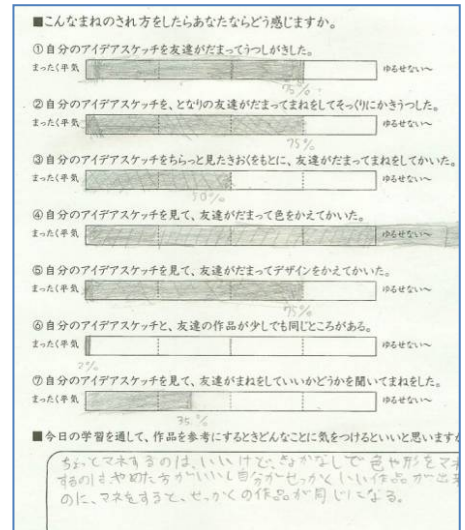 ■こんなまねのされ方をしたらあなたならどう感じますか。
①自分のアイデアスケッチを友達がだまってうつしがきした。
まったく平気 ゆるせない〜
75%
②自分のアイデアスケッチを、となりの友達がだまってまねをしてそっくりにかきうつした。
まったく平気 ゆるせない〜
75%
③自分のアイデアスケッチをちらっと見たきおくをもとに、友達がだまってまねをしてかいた。
まったく平気 ゆるせない〜
50%
④自分のアイデアスケッチを見て、友達がだまって色をかえてかいた。
まったく平気 ゆるせない〜
⑤自分のアイデアスケッチを見て、友達がだまってデザインをかえてかいた。
まったく平気 ゆるせない〜
75%
⑥自分のアイデアスケッチと、友達の作品が少しでも同じところがある。
まったく平気 ゆるせない〜
2%
⑦自分のアイデアスケッチを見て、友達がまねをしていいかどうかを聞いてまねをした。
まったく平気 ゆるせない〜
35%
■今日の学習を通して、作品を参考にするときどんなことに気をつけるといいと思いますか
ちょっとマネするのは、いいけど、きょかなしで色や形をマネ
するのはやめた方がいいし自分がせっかくいい作品が出来
のに、マネをすると、せっかくの作品が同じになる。